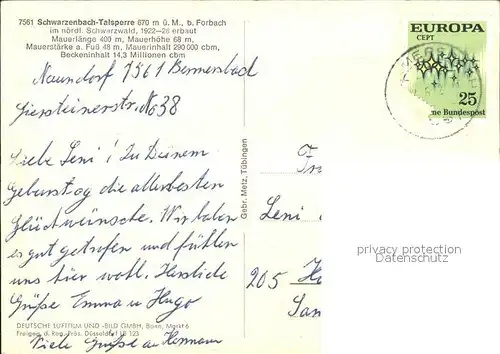 7561 Schwarzenbach-Talsperre 670 m ü. M., b. Forbach
im nördl. Schwarzwald, 1922–26 erbaut
Mauerlänge 400 m, Mauerhöhe 68 m,
Mauerstärke a. Fuß 48 m, Mauerinhalt 290 000 cbm,
Beckeninhalt 14,3 Millionen cbm
EUROPA
CEPT
25
ne Bundespost
Naundorf 7561 Bermersbad
Giersteinerstr. No 38
Liebe Leni! Zu Deinem
Geburstag die allerbesten
Glückwünsche. Wir haben
es gut getrofen und fühlen
uns hier wohl. Herzliche
Grüße Emma u Hugo
Viele Grüße an Hermann
DEUTSCHE LUFTFILM UND -BILD GMBH, Bonn, Markt 6
Freigeg. d. Reg.-Präs. Düsseldorf LB 123
Gebr. Metz, Tübingen
Fr
Leni
205 H
San
privacy protection
Datenschutz